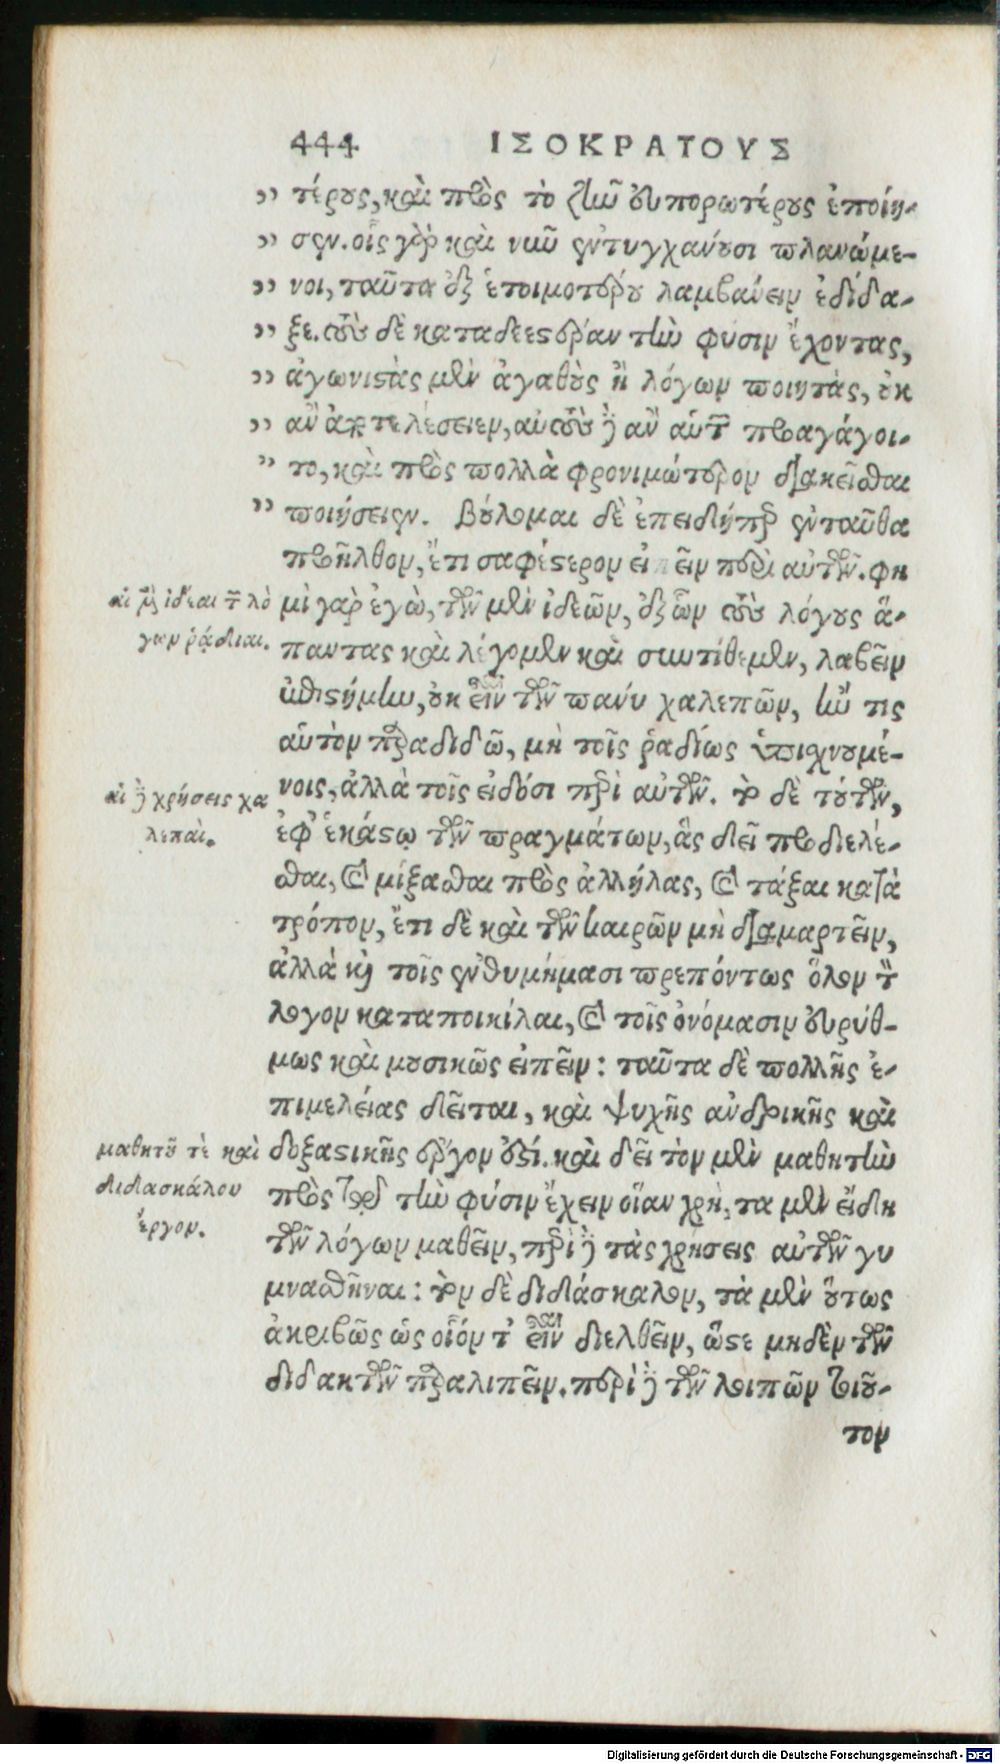 444 ΙΣΟΚΡΑΤΟΥΣ
„ τέρους, καὶ πρὸς τὸ ζητεῖν εὐπορωτέρους ἐποίη-
„ σεν. οἷς γὰρ καὶ νῦν ἐντυγχάνουσι πλανώμε-
„ νοι, ταῦτα ἐξ ἑτοιμοτέρου λαμβάνειν ἐδίδα-
„ ξε. τοὺς δὲ καταδεεστέραν τὴν φύσιν ἔχοντας,
„ ἀγωνιστὰς μὲν ἀγαθοὺς ἢ λόγων ποιητὰς, οὐκ
„ ἂν ἀποτελέσειεν, αὐτοὺς δ' ἂν αὑτῶν προαγάγοι-
„ το, καὶ πρὸς πολλὰ φρονιμώτερον διακεῖσθαι
„ ποιήσειεν. βούλομαι δὲ ἐπειδήπερ ἐνταῦθα
προῆλθον, ἔτι σαφέστερον εἰπεῖν περὶ αὐτῶν. φη
αἱ μὲν ἰδέαι τῶν λό
γων ῥᾴδιαι.
μὶ γὰρ ἐγὼ, τῶν μὲν ἰδεῶν, ἐξ ὧν τοὺς λόγους ἅ-
παντας καὶ λέγομεν καὶ συντίθεμεν, λαβεῖν
ἐπιστήμην, οὐκ εἶναι τῶν πάνυ χαλεπῶν, ἤν τις
αὑτὸν παραδιδῶ, μὴ τοῖς ῥαδίως ὑπισχνουμέ-
αἱ δὲ χρήσεις χα
λεπαὶ.
νοις, ἀλλὰ τοῖς εἰδόσι περὶ αὐτῶν. τὸ δὲ τούτων,
ἐφ' ἑκάστῳ τῶν πραγμάτων, ἃς δεῖ προδιελέ-
σθαι, καὶ μίξασθαι πρὸς ἀλλήλας, καὶ τάξαι κατὰ
τρόπον, ἔτι δὲ καὶ τῶν καιρῶν μὴ διαμαρτεῖν,
ἀλλά καὶ τοῖς ἐνθυμήμασι πρεπόντως ὅλον τὸν
λόγον καταποικίλαι, καὶ τοῖς ὀνόμασιν εὐρύθ-
μως καὶ μουσικῶς εἰπεῖν: ταῦτα δὲ πολλῆς ἐ-
πιμελείας δεῖται, καὶ ψυχῆς ἀνδρικῆς καὶ
μαθητοῦ τὲ καὶ
διδασκάλου
ἔργον.
δοξαστικῆς ἔργον ἐστί. καὶ δεῖ τὸν μὲν μαθητὴν
πρὸς τῷ τὴν φύσιν ἔχειν οἵαν χρὴ, τα μὲν εἴδη
τῶν λόγων μαθεῖν, περὶ δὲ τὰς χρήσεις αὐτῶν γυ
μνασθῆναι: τὸν δὲ διδάσκαλον, τὰ μὲν οὕτως
ἀκριβῶς ὡς οἷόν τ' εἶναι διελθεῖν, ὥστε μηδὲν τῶν
διδακτῶν παραλιπεῖν. περὶ δὲ τῶν λοιπῶν τοιοῦ-
τον
Digitalisierung gefördert durch die Deutsche Forschungsgemeinschaft - DFG